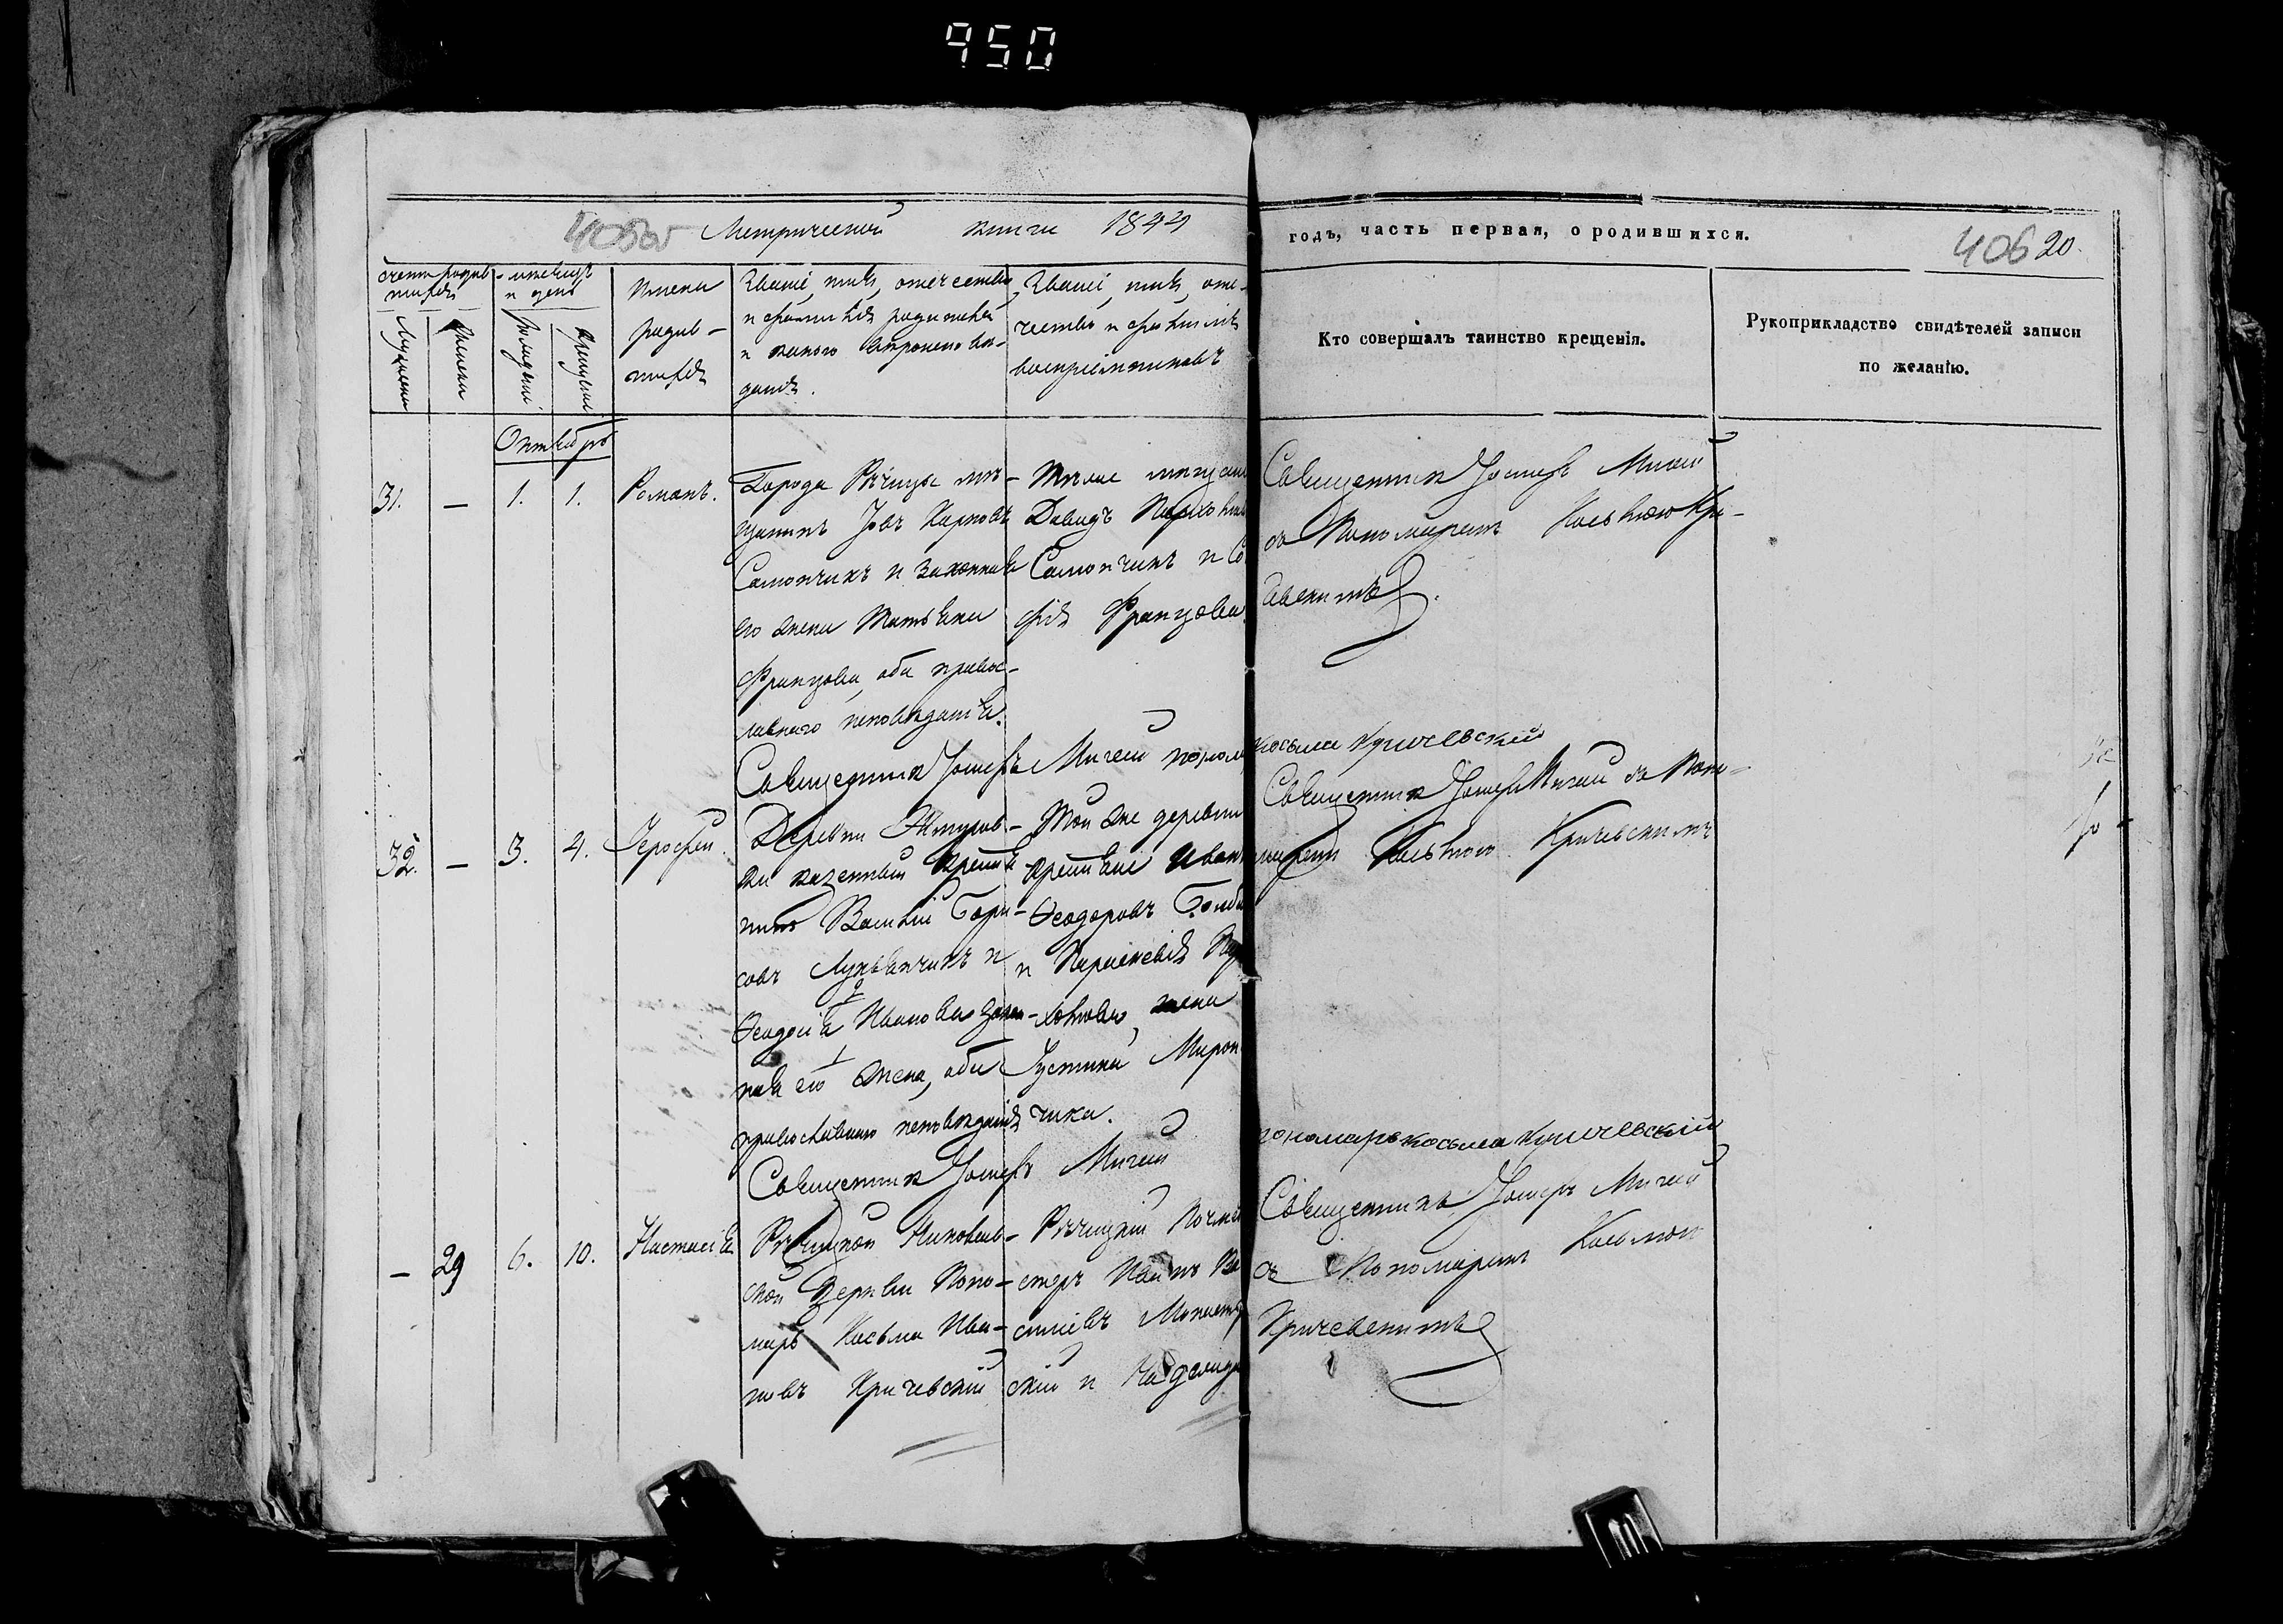 950
405об Метрической книги 1844
годъ, часть первая, о родившихся.
406 20.
Счетъ родив-
шихся
Мужеска
Женска
мѣсяцъ
и день
Рожденія
Крещенія
Имена
родив-
шихся
Званіе, имя, отечество
и фамилія родителей
и какого вѣроисповѣ-
данія.
Званіе, имя, оте-
чество и фамилія
воспріемниковъ
Кто совершалъ таинство крещенія.
Рукоприкладство свидѣтелей записи
по желанію.
Октябрь
31.
—
1.
1.
Романъ.
Города Рѣчицы мѣ-
щанинъ Іовъ Карповъ
Самончикъ и законная
его жена Татьяна
Францова, оба правос-
лавнаго исповѣданія.
Давидъ
Самончикъ и Со
фія Францова
Священникъ Іосифъ Мигай
съ Пономаремъ Косьмою Кри-
чевскимъ.
Священникъ Іосифъ Мигай поном косьма кричевский
32.
—
3.
4.
Іерофей.
Деревни
казенный крестья
нинъ Василій Бори-
совъ Лукьянчикъ и
Ѳеодосія Иванова закон
ная его жена, оба
православнаго исповѣданія
Той же деревни
крестьяне Иванъ
Ѳеодоровъ
и Параскевія
жена
Іустина Мирон
чика.
Священникъ Іосифъ Мигай съ Поно-
маремъ Косьмою Кричевскимъ
Священникъ Іосифъ Мигай
пономарь косьма кричевский
—
29
6.
10.
Настасія
Рѣчицкой Николаев-
ской Церкви Поно-
марь Косьма Ива-
новъ Кричевскій
Рѣчицкій Почтмей
стеръ Иванъ Ва
силіевъ Монасты
скій и
Священникъ Іосифъ Мигай
съ Пономаремъ Косьмою
Кричевскимъ